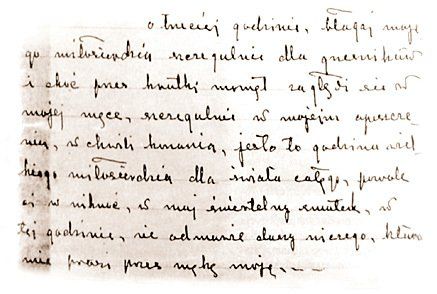 o trzeciej godzinie, błagaj moje
go miłosierdzia szczególnie dla grzeszników
i choć przez krótki moment zagłębi się w
mojej męce, szczególnie w mojem opuszcze
niu, w chwili konania, jest to godzina wiel
kiego miłosierdzia dla świata całego, pozwolę
ci wniknąć, w mój śmiertelny smutek, w
tej godzinie, nie odmówię duszy niczego, która
mnie prosi przez mękę moją, . — —